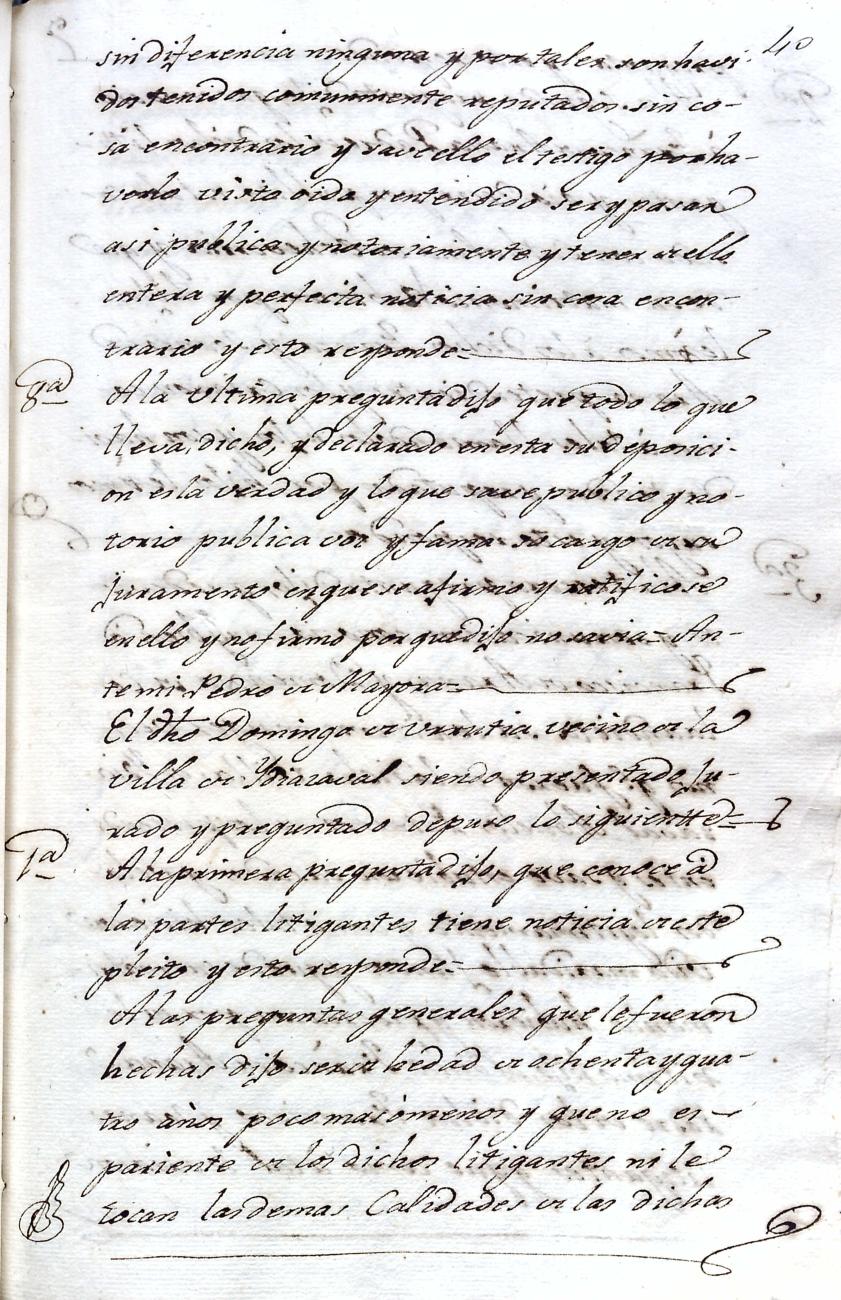 40
sin diferencia ninguna y por tales son havi-
dos tenidos comunmente reputados sin co-
sa encontrario y save ello el testigo por ha-
verlo visto oido y entendido ser y pasar
asi publica y notoriamente y tener de ello
entera y perfecta noticia sin cosa encon-
trario y esto responde=
8a
A la ultima pregunta dijo que todo lo que
lleva, dicho, y declarado en esta su deposici-
on es la verdad y lo que save publico y no-
torio publica voz y fama so cargo de su
Juramento en que se afirmo y ratifico se
en ello y no firmo porque dijo no savia= An-
te mi Pedro de Mayora=
El dho Domingo de Urrutia vecino de la
villa de Ydiazaval siendo presentado Ju-
rado y preguntado depuso lo siguientte=
1a
A la primera pregunta dijo, que conoce à
las partes litigantes tiene noticia de este
pleito y esto responde=
A las preguntas generales que le fueron
hechas dijo ser de hedad de ochenta y qua-
tro años poco mas ò menos y que no es
pariente de los dichos litigantes ni le
tocan las demas Calidades de las dichas